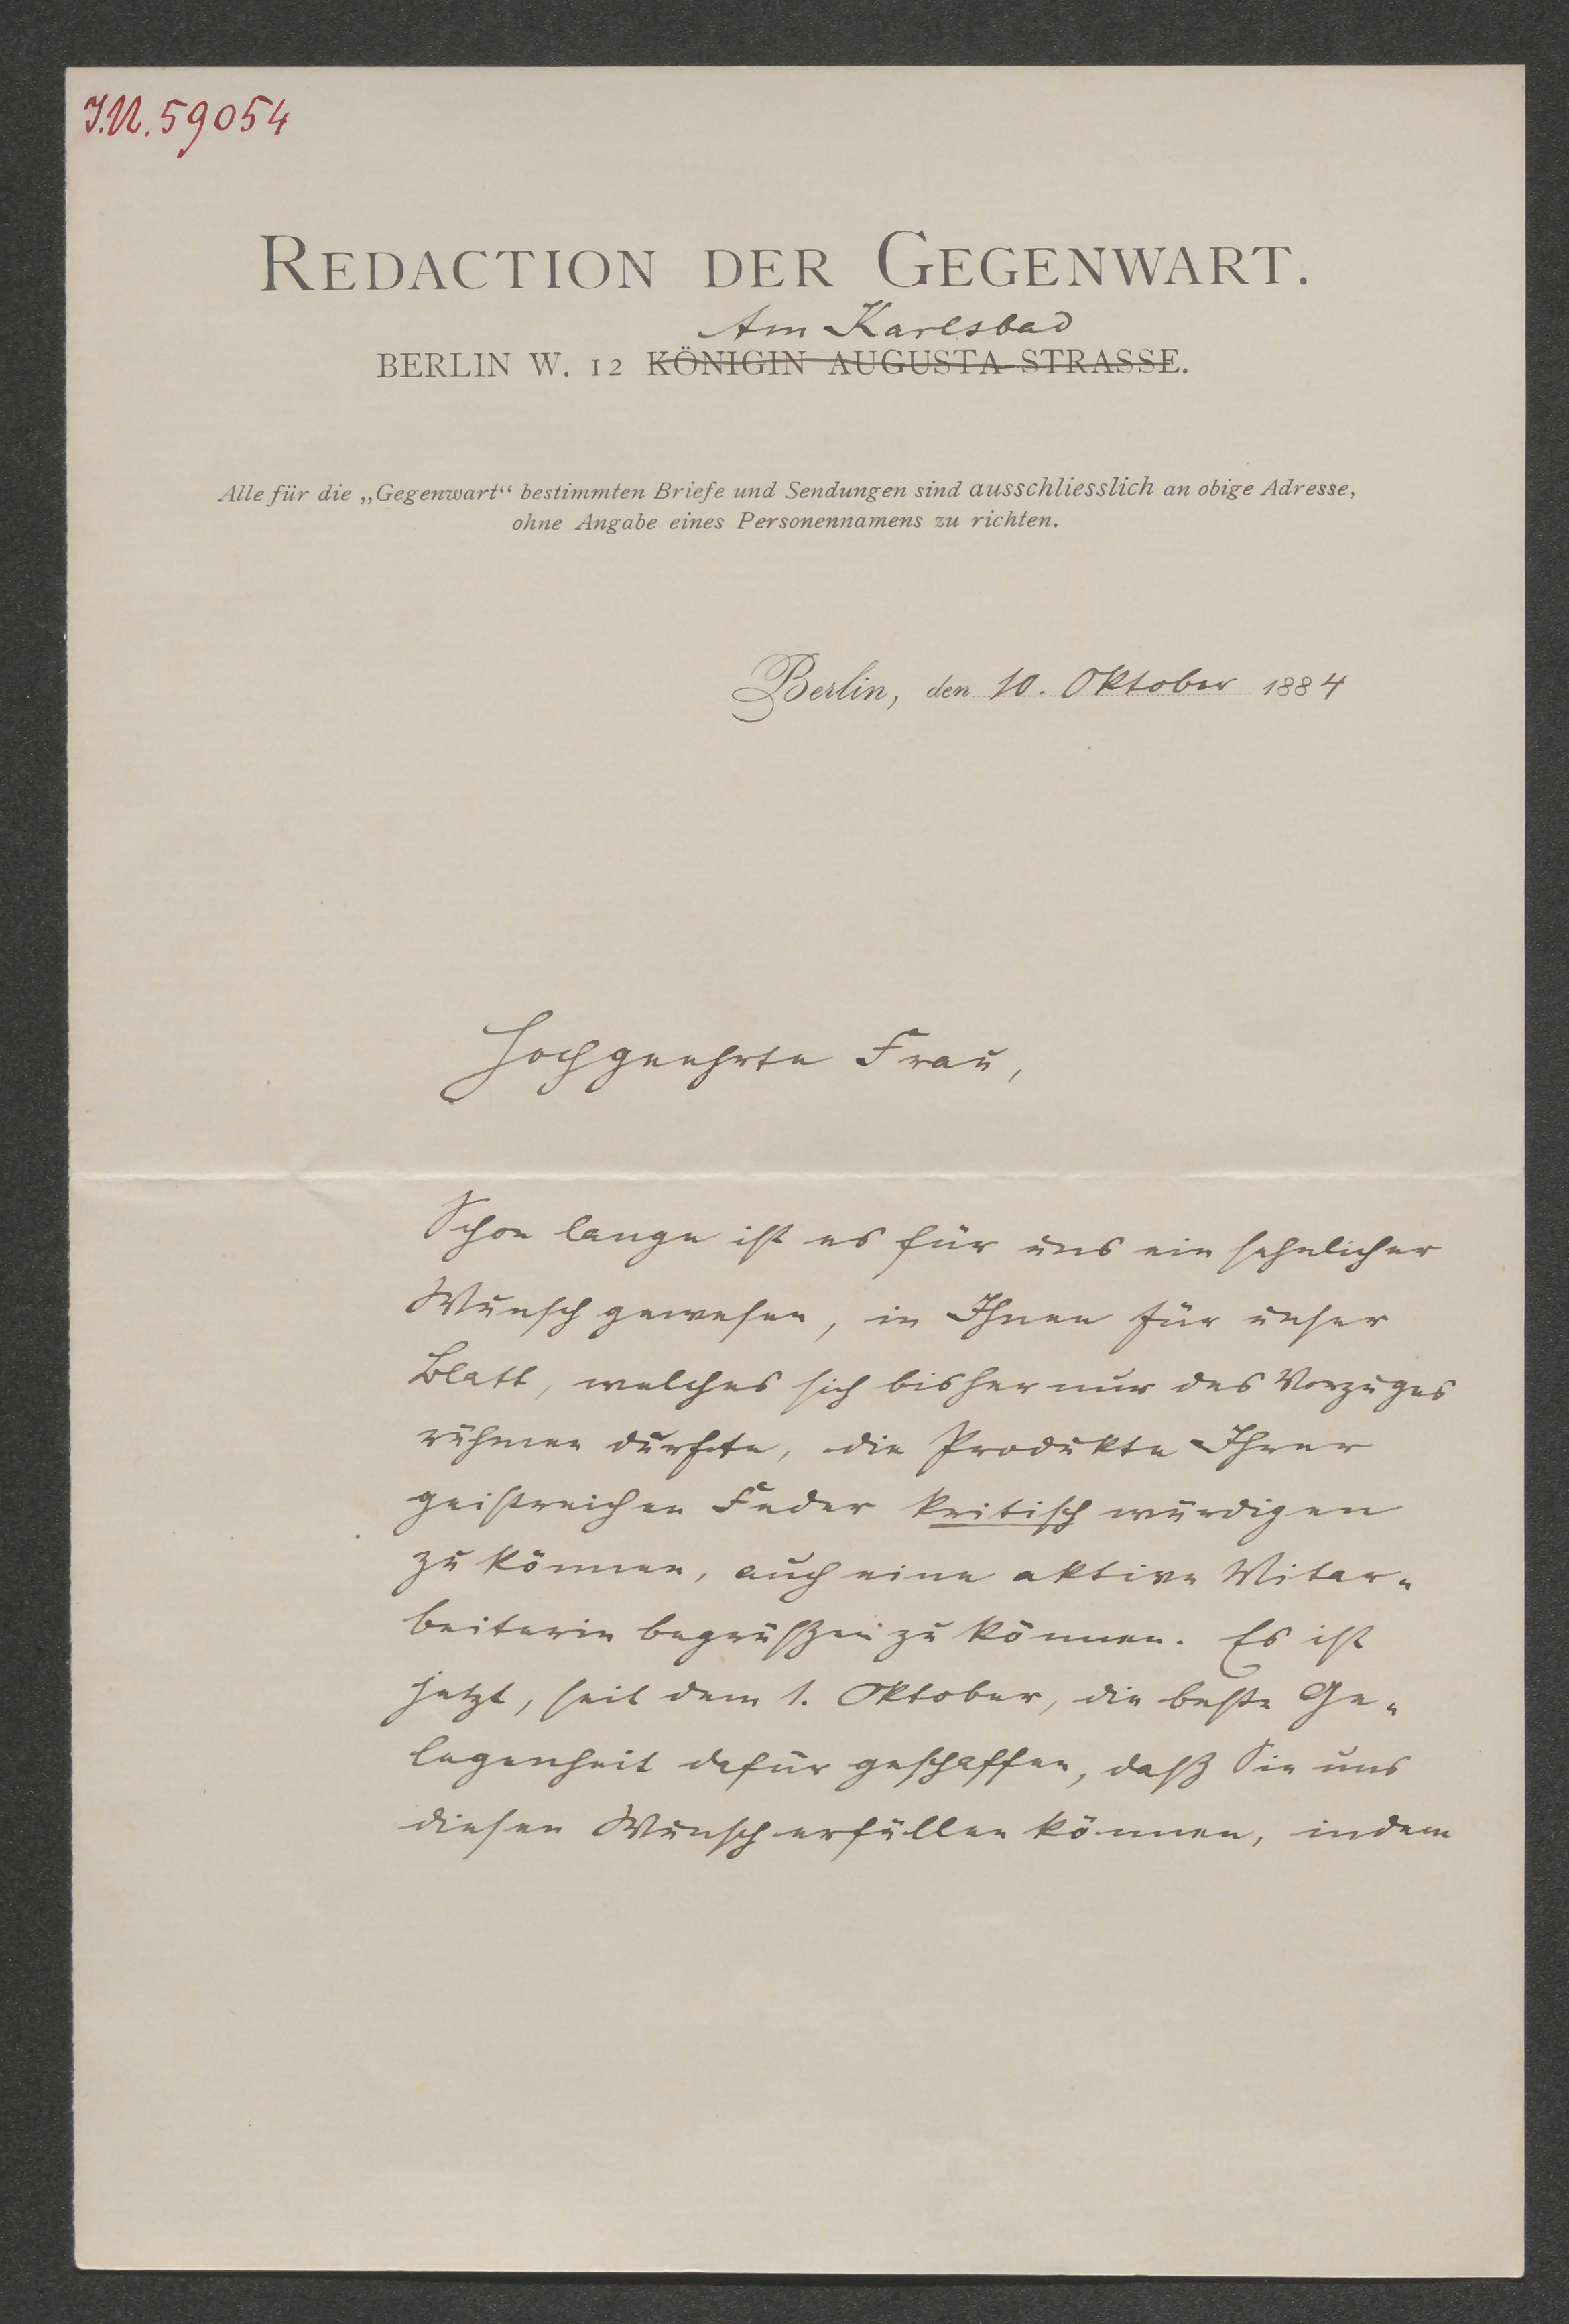 I.N. 59054
REDACTION DER GEGENWART.
Am Karlsbad
BERLIN W. 12 KÖNIGIN AUGUSTA-STRASSE.
Alle für die „Gegenwart“ bestimmten Briefe und Sendungen sind ausschliesslich an obige Adresse,
ohne Angabe eines Personennamens zu richten.
Berlin, den 10. Oktober 1884
Hochgeehrte Frau,
Schon lange ist es für uns ein sehnlicher
Wunsch gewesen, in Ihnen für unser
Blatt, welches sich bisher nur des Vorzuges
rühmen durfte, die Produkte Ihrer
geistreichen Feder kritisch würdigen
zu können, auch eine aktive Mitar-
beiterin begrüßen zu können. Es ist
jetzt, seit dem 1. Oktober, die beste Ge-
legenheit dafür geschaffen, daß Sie uns
diesen Wunsch erfüllen können, indem